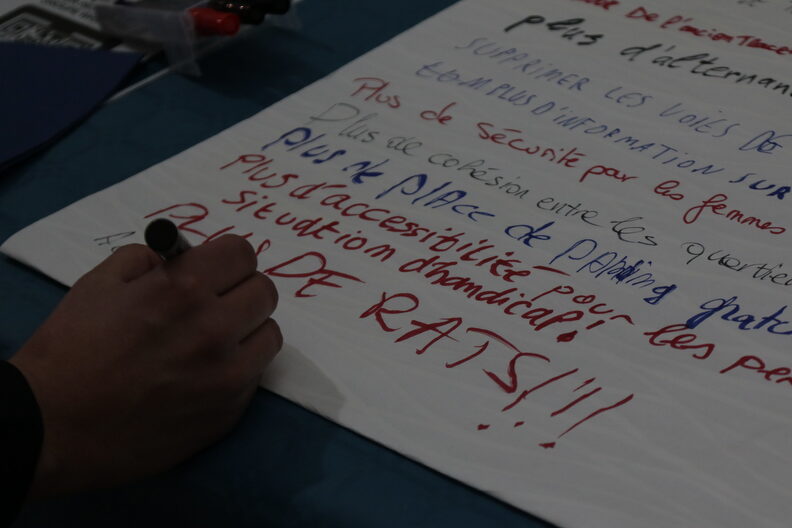 DE l'ancien
plus d'alternan
SUPPRIMER LES VOIES DE
PLUS D'INFORMATION SUR
Plus de sécurité par les femmes
Plus de cohésion entre les quartie
Plus de place de parking gratu
Plus d'accessibilité pour les per
situation d'handicap!
PLUS DE RATS!!!